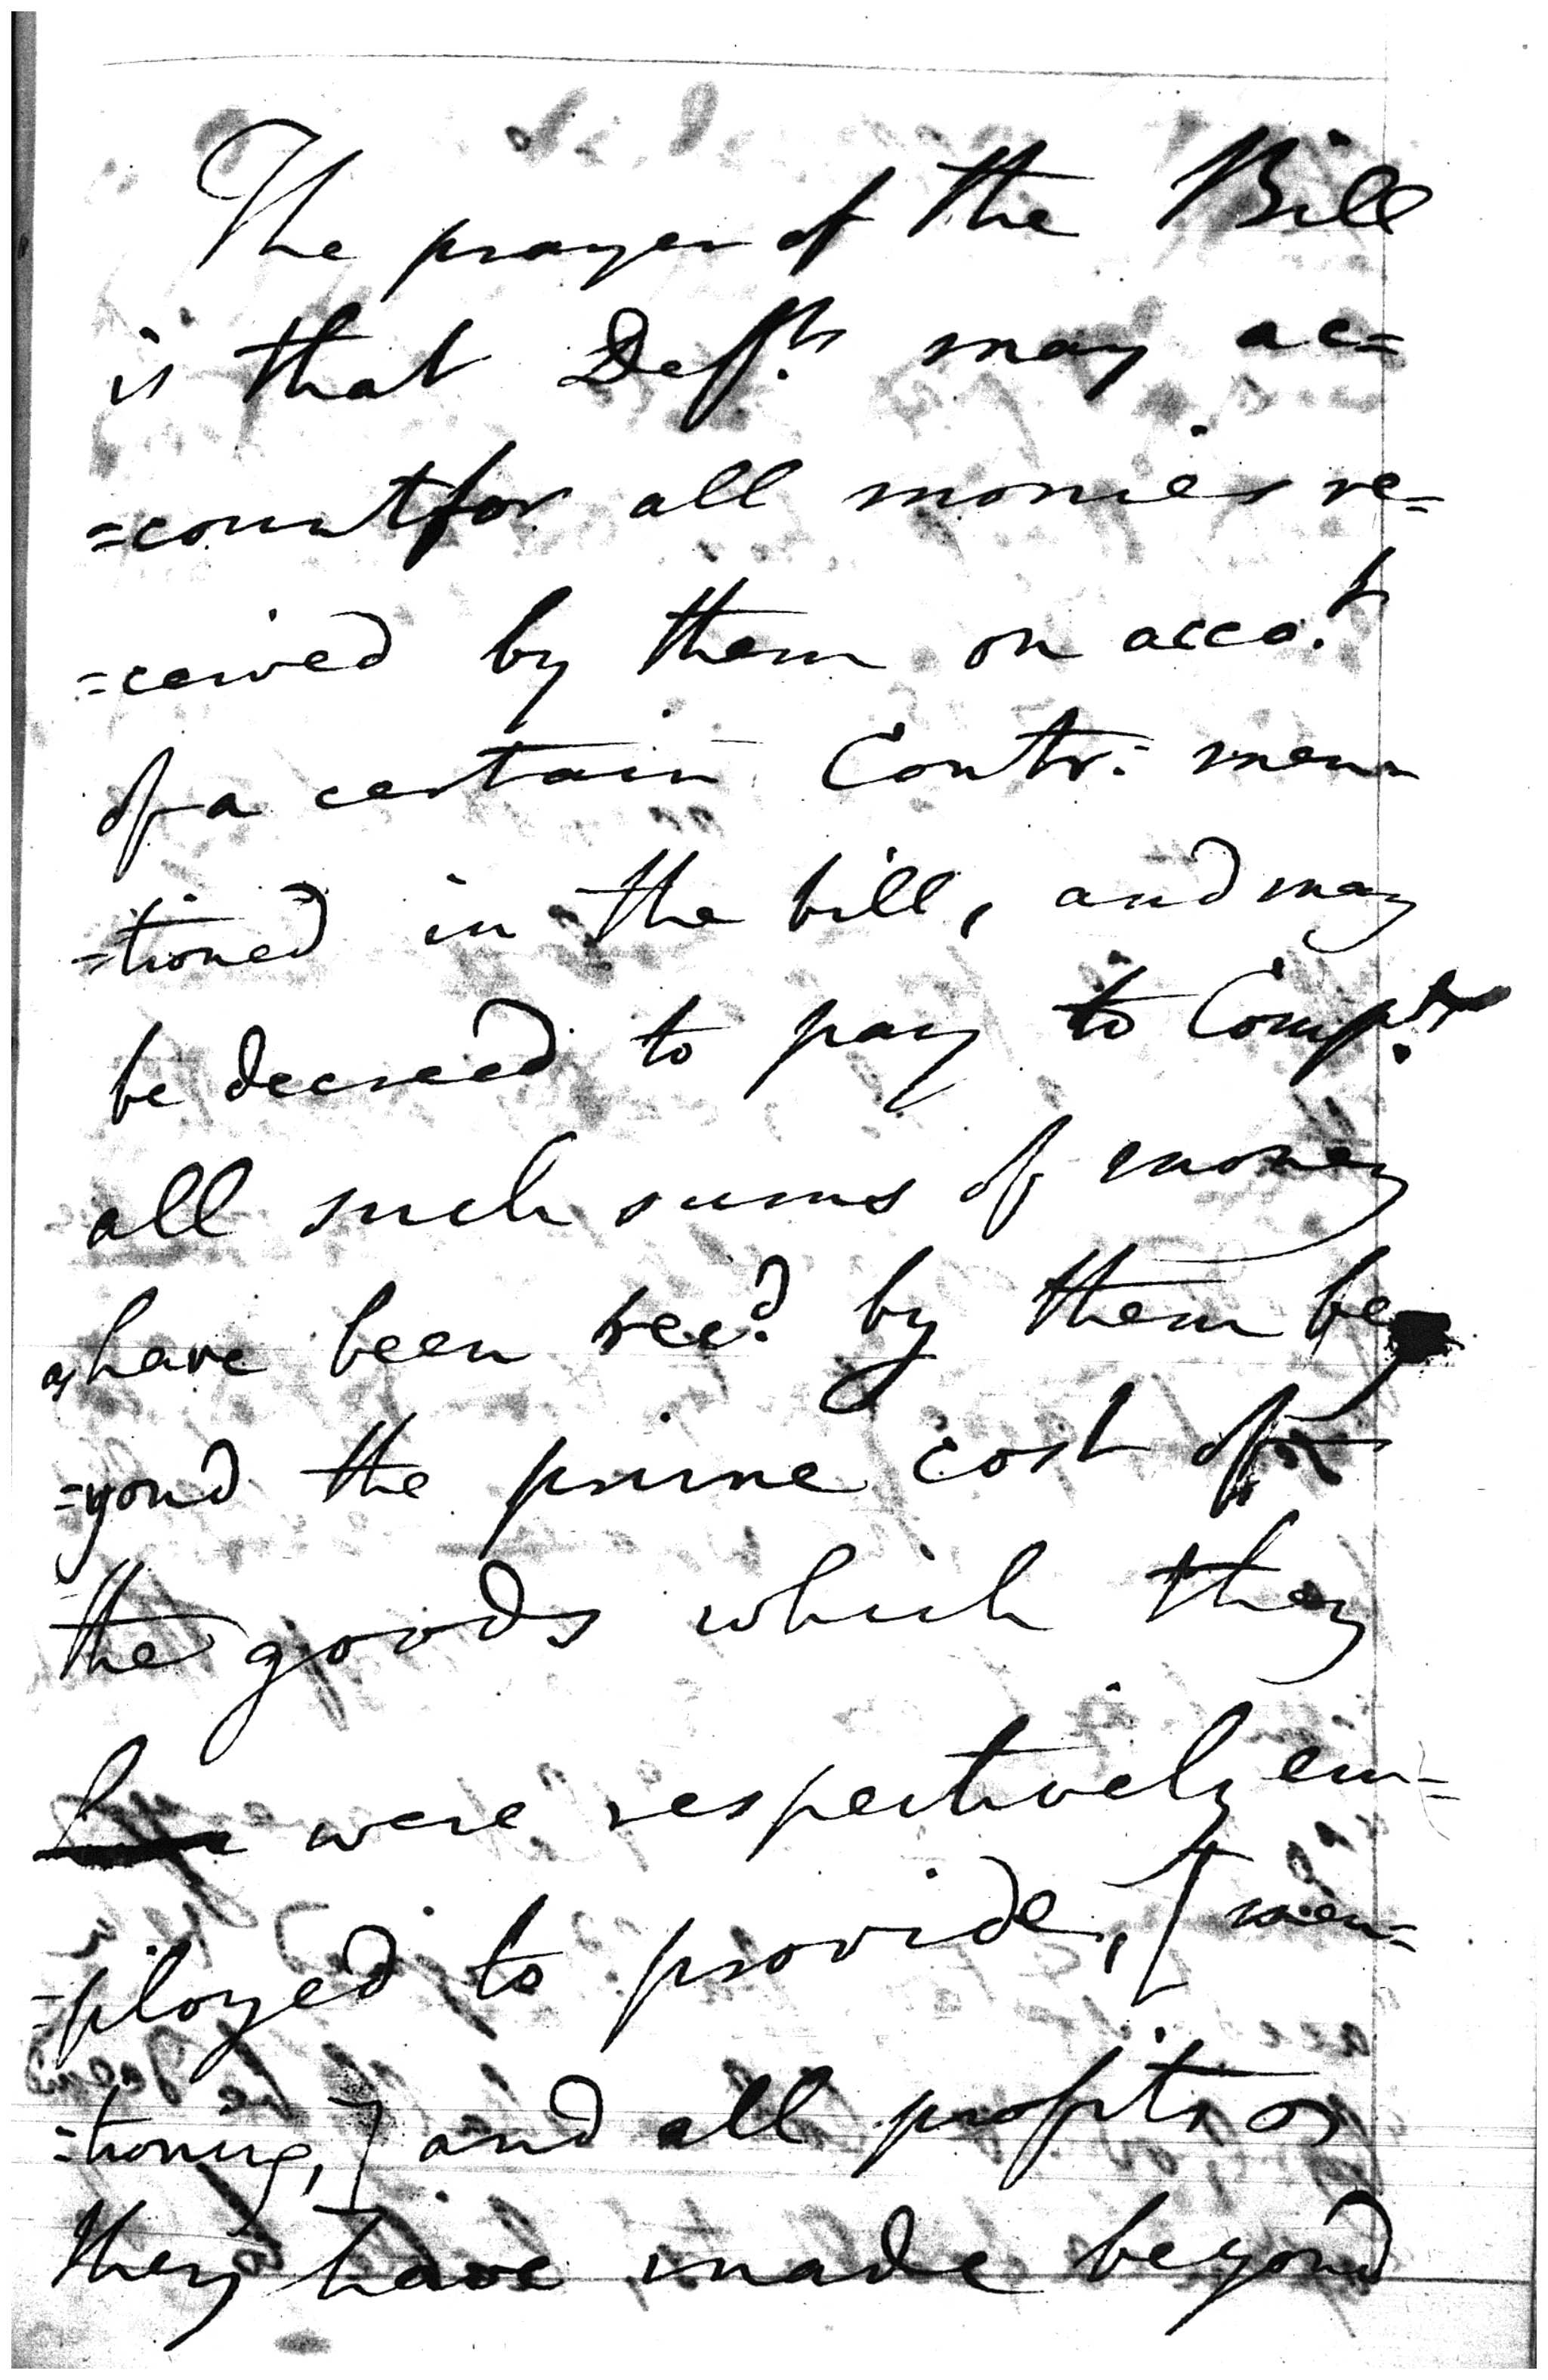 The prayer of the Bill
is that Defts. may ac=
=count for all monies re=
=ceived by them on acco.t
of a certain Contr: men=
=tioned in the bill, and may
be decreed to pay to Comp.ts
all such sums of money
as have been rec.d by them be
=yond the prime cost of
the goods which they
were respectively em=
=ployed to provide, [men=
=tioning,] and all profits as
they have made beyond